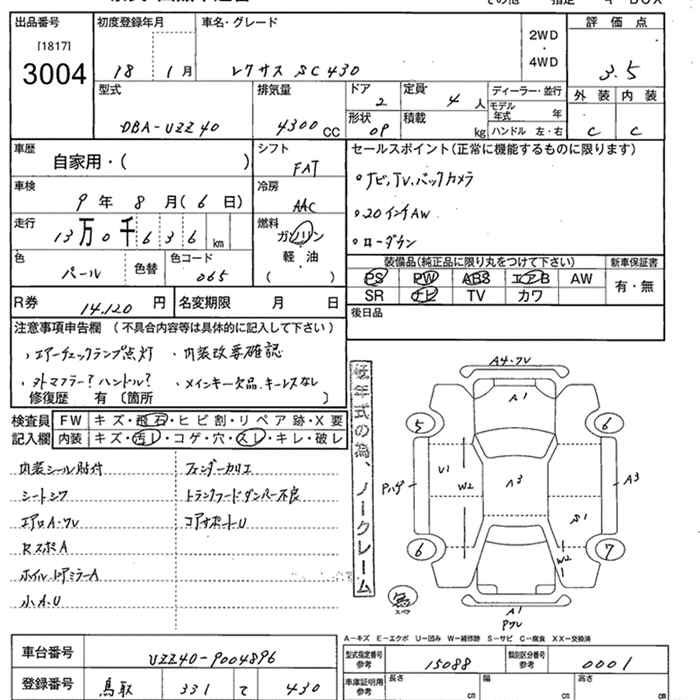 出品番号 初度登録年月 車名・グレード 2WD 評価点
[1817] ・
3004 18 1月 レクサス SC430 4WD 3.5
型式 排気量 ドア 2 定員 4人 ディーラー・並行 外装 内装
モデル年式 年
DBA-UZZ40 4300CC 形状 OP 積載 kg ハンドル 左・右 C C
車歴 自家用・( ) シフト FAT セールスポイント(正常に機能するものに限ります)
車検 9年 8月(6日) 冷房 AAC ・ナビ、TV、バックカメラ
・20インチAW
走行 13万0千636km 燃料 ガソリン ・ローダウン
色 パール 色替 色コード 065 軽・油 ( )
装備品(純正品に限り丸をつけて下さい) 新車保証書
PS PW ABS エアB AW 有・無
SR ナビ TV カワ
R券 14.120円 名変期限 月 日 後日品
注意事項申告欄 (不具合内容等は具体的に記入して下さい)
・エアーチェックランプ点灯 ・内装改要確認
・ヨトマフラー?ハンドル? ・メインキー欠品、キーレスなし
修復歴 有 〔箇所 〕
検査員 FW キズ・飛石・ヒビ割・リペア跡・X要
記入欄 内装 キズ・汚レ・コゲ・穴・スレ・キレ・破レ
内装シール貼付 フェンダーカリエ
シートシワ トランクフードダンパー不良
エアロA・ワレ コアサポートU
RスポA
ホイル、ドアミラーA
小A.U
ノークレーム
A4・ワレ
A1
5 6
U1 W2 A3 A3
S1
6 7
W2
A1
A-キズ E-エクボ U-凹み W-補修跡 S-サビ C-腐食 XX-交換済
車台番号 UZZ40-9004896 型式指定番号 参考 15088 類別区分番号 参考 0001
登録番号 鳥取 331 て 430 車庫証明用 参考 長さ cm 幅 cm 高さ cm